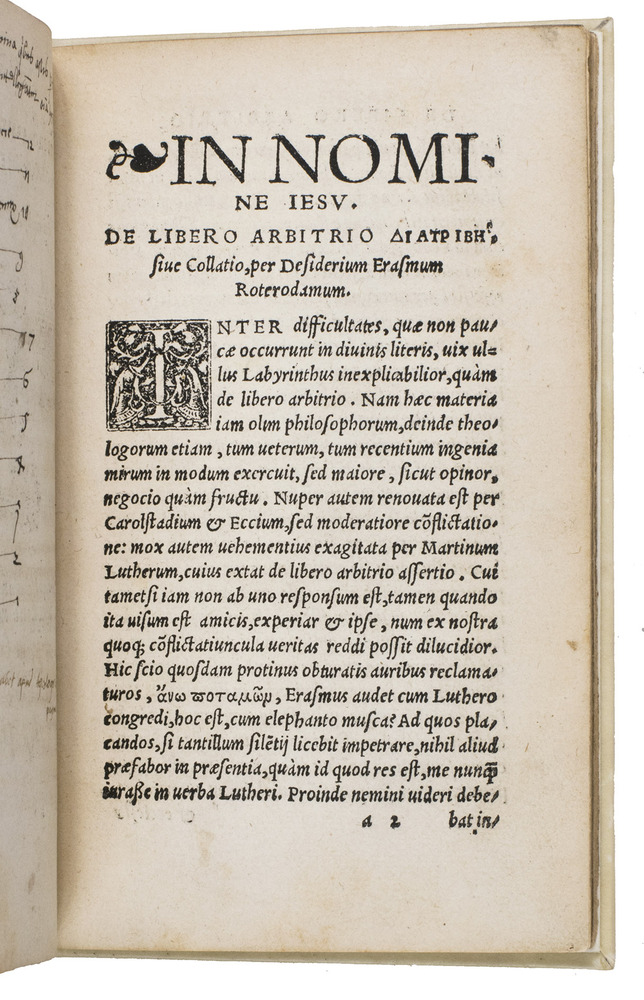 ❧IN NOMI-
NE IESV.
DE LIBERO ARBITRIO ΔΙΑΤΡΙΒΗ,
ſiue Collatio,per Deſiderium Eraſmum
Roterodamum.
INTER difficultates, quæ non pau-
cæ occurrunt in diuinis literis, uix ul=
lus Labyrinthus inexplicabilior,quàm
de libero arbitrio . Nam hæc materia
iam olim philoſophorum,deinde theo-
logorum etiam , tum ueterum, tum recentium ingenia
mirum in modum exercuit, ſed maiore , ſicut opinor,
negocio quàm fructu . Nuper autem renouata eſt per
Carolſtadium & Eccium,ſed moderatiore cõflictatio-
ne: mox autem uehementius exagitata per Martinum
Lutherum,cuius extat de libero arbitrio aſſertio . Cui
tametſi iam non ab uno reſponſum eſt,tamen quando
ita uiſum eſt amicis,experiar & ipſe , num ex noſtra
quoq; cõflictatiuncula ueritas reddi poſſit dilucidior.
Hic ſcio quoſdam protinus obturatis auribus reclama-
turos , ἄνω ποταμῶμ , Eraſmus audet cum Luthero
congredi,hoc eſt,cum elephanto muſca? Ad quos pla-
candos,ſi tantillum ſilẽtij licebit impetrare,nihil aliud
præfabor in præſentia,quàm id quod res eſt,me nunq̃
iuraſſe in uerba Lutheri. Proinde nemini uideri debe-
a 2 bat in-